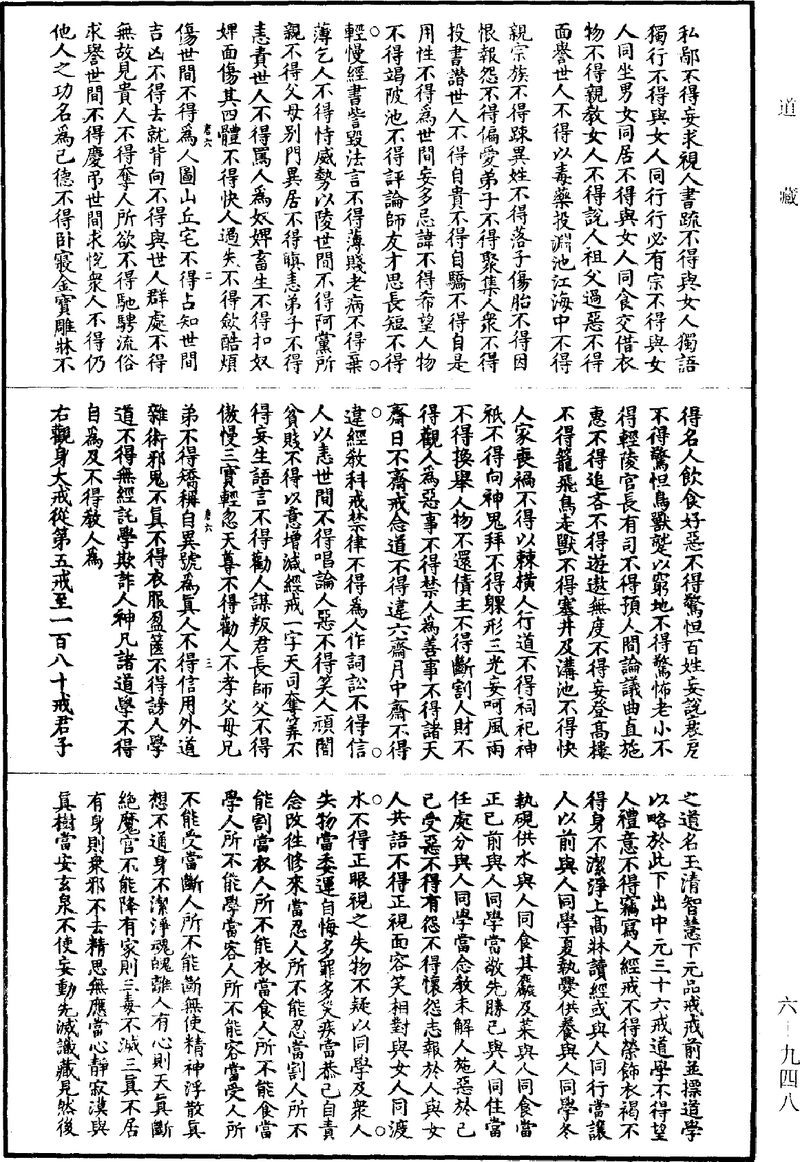 道藏
六-九四八
私鄙不得妄求視人書疏不得與女人獨語
獨行不得與女人同行行必有宗不得與女
人同坐男女同居不得與女人同食交借衣
物不得親教女人不得說人祖父過惡不得
面譽世人不得以毒藥投淵池江海中不得
親宗族不得踈異姓不得落子傷胎不得因
恨報怨不得偏愛弟子不得聚集人衆不得
投書譖世人不得自貴不得自驕不得自是
用性不得爲世間妄多忌諱不得希望人物
不得竭陂池不得評論師友才思長短不得
輕慢經書訾毀法言不得薄賤老病不得棄
薄乞人不得恃威勢以陵世間不得阿黨所
親不得父母别門異居不得瞋恚弟子不得
恚責世人不得罵人爲奴婢畜生不得扣奴
婢面傷其四體不得快人過失不得歛酷煩
唐六 二
傷世間不得爲人圖山丘宅不得占知世間
吉凶不得去就背向不得與世人群處不得
無故見貴人不得奪人所欲不得馳騁流俗
求譽世間不得慶弔世間求悅衆人不得仍
他人之功名爲己德不得卧寢金寶雕牀不
得名人飲食好惡不得驚怛百姓妄說裁居
不得驚怛鳥獸蹵以窮地不得驚怖老小不
得輕陵官長有司不得預人間論議曲直施
惠不得追吝不得遊遨無度不得妄登高樓
不得籠飛鳥走獸不得塞井及溝池不得快
人家喪禍不得以棘橫人行道不得祠祀神
祇不得向神鬼拜不得躶形三光妄呵風雨
不得換舉人物不還債主不得斷割人財不
得觀人爲惡事不得禁人爲善事不得諸天
齋日不齋戒念道不得違六齋月中齋不得
違經敎科戒禁律不得爲人作詞訟不得信
人以恚世間不得唱論人惡不得笑人頑闇
貧賤不得以意增減經戒一字天司奪筭不
得妄生語言不得勸人謀叛君長師父不得
傲慢三寶輕忽天尊不得勸人不孝父母兄
唐六 三
弟不得矯稱自異號爲眞人不得信用外道
雜術邪鬼不眞不得衣服盈篋不得謗人學
道不得無經託學欺詐人神凡諸道學不得
自爲及不得敎人爲
右觀身大戒從第五戒至一百八十戒君子
之道名玉清智慧下元品戒戒前並摽道學
以略於此下出中元三十六戒道學不得望
人禮意不得竊寫人經戒不得榮飾衣褐不
得身不潔淨上高牀讀經或與人同行當讓
人以前與人同學夏執㸑供養與人同學冬
執硯供水與人同食其麤及菜與人同食當
正己前與人同學當敬先勝己與人同住當
任處分與人同學當念敎未解人施惡於己
己受惡不得有怨不得懷怨志報於人與女
人共語不得正視面容笑相對與女人同渡
水不得正眼視之失物不疑以同學及衆人
失物當委運自悔多罪多災疾當恭己自責
念改往修來當忍人所不能忍當割人所不
能割當衣人所不能衣當食人所不能食當
學人所不能學當容人所不能容當受人所
不能受當斷人所不能斷無使精神浮散眞
想不通身不潔淨魂魄離人有心則天眞斷
絶魔官不能降有家則三毒不滅三眞不居
有身則衆邪不去精思無應當心靜寂漠與
眞樹當安玄泉不使妄動先滅讖藏見然後